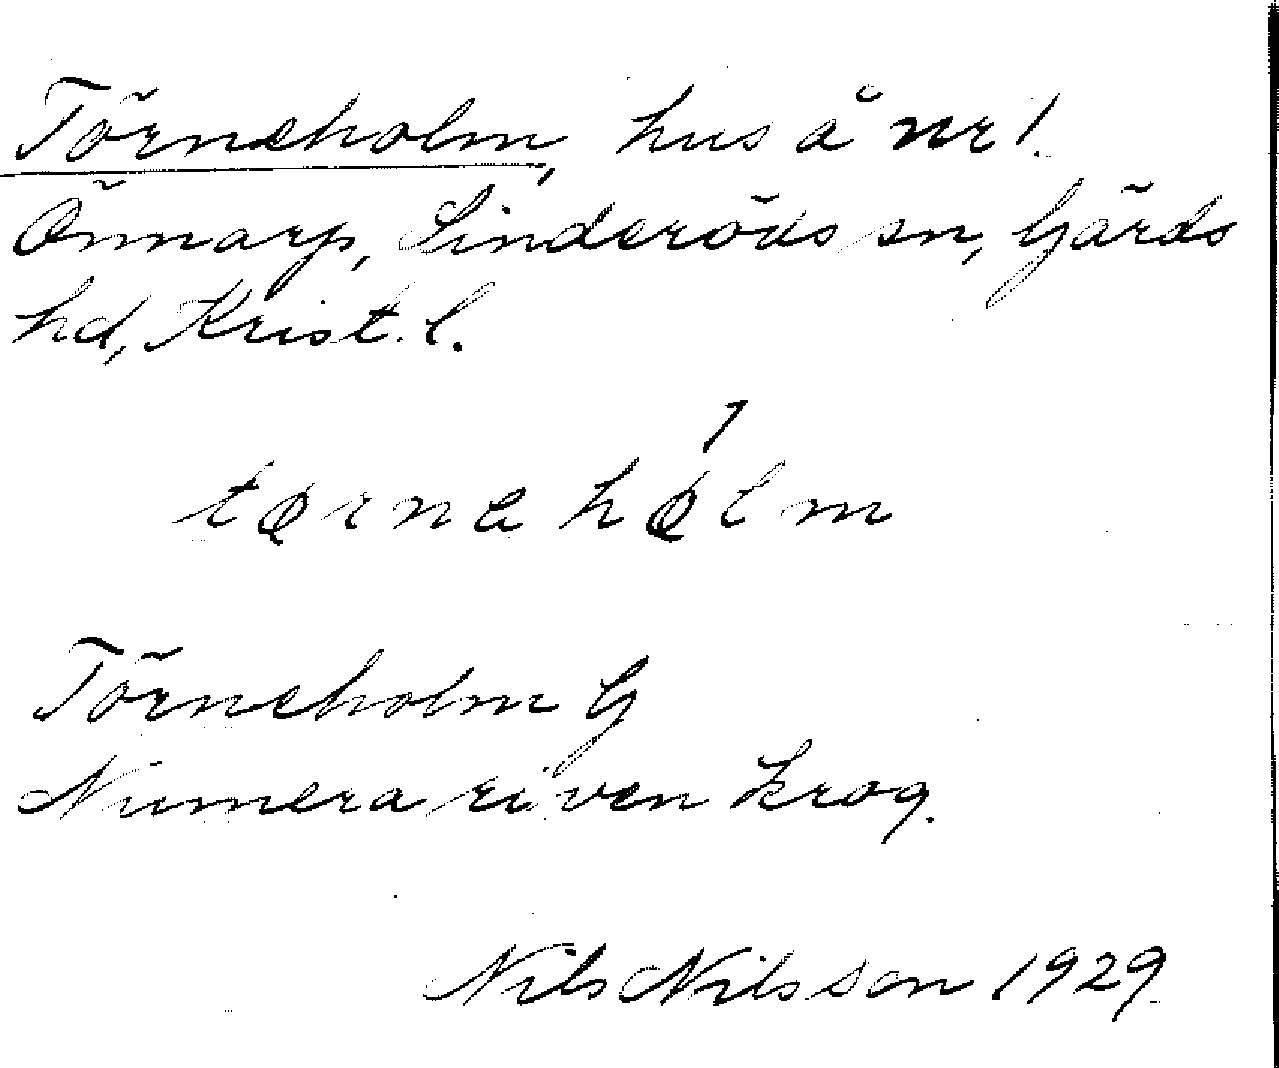 Törneholm, hus å nr 1.
Önnarp, Linderöds sn, Gärds
hd, Krist. l.
Törneholm G
Numera riven krog.
Nils Nilsson 1929